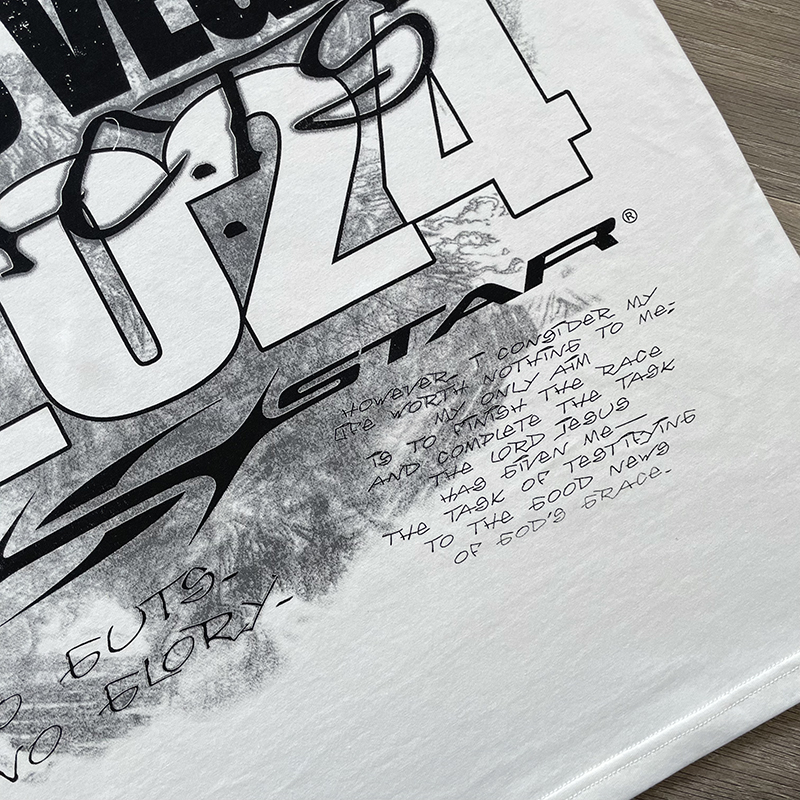 VEGAS
2024
STAR®
HOWEVER, I CONSIDER MY
LIFE WORTH NOTHING TO ME;
MY ONLY AIM
IS TO FINISH THE RACE
AND COMPLETE THE TASK
THE LORD JESUS
HAS GIVEN ME—
THE TASK OF TESTIFYING
TO THE GOOD NEWS
OF GOD'S GRACE.
GUTS-
NO GLORY-